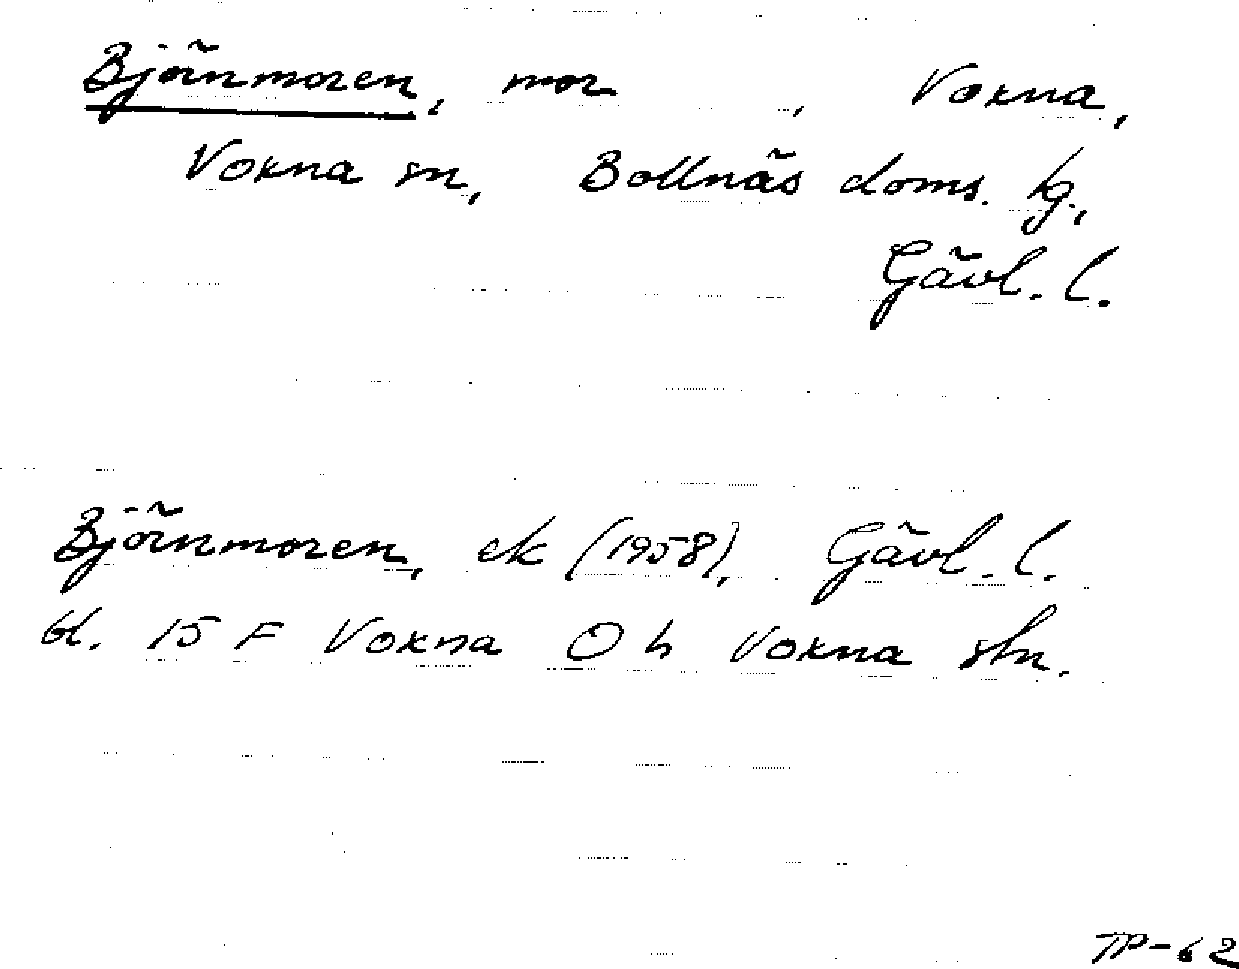 Björnmoren, mor, Voxna,
Voxna sn, Bollnäs doms. tg.,
Gävl. l.
Björnmoren, ek (1958), Gävl. l.
bl. 15 F Voxna O h Voxna stn.
TP-62